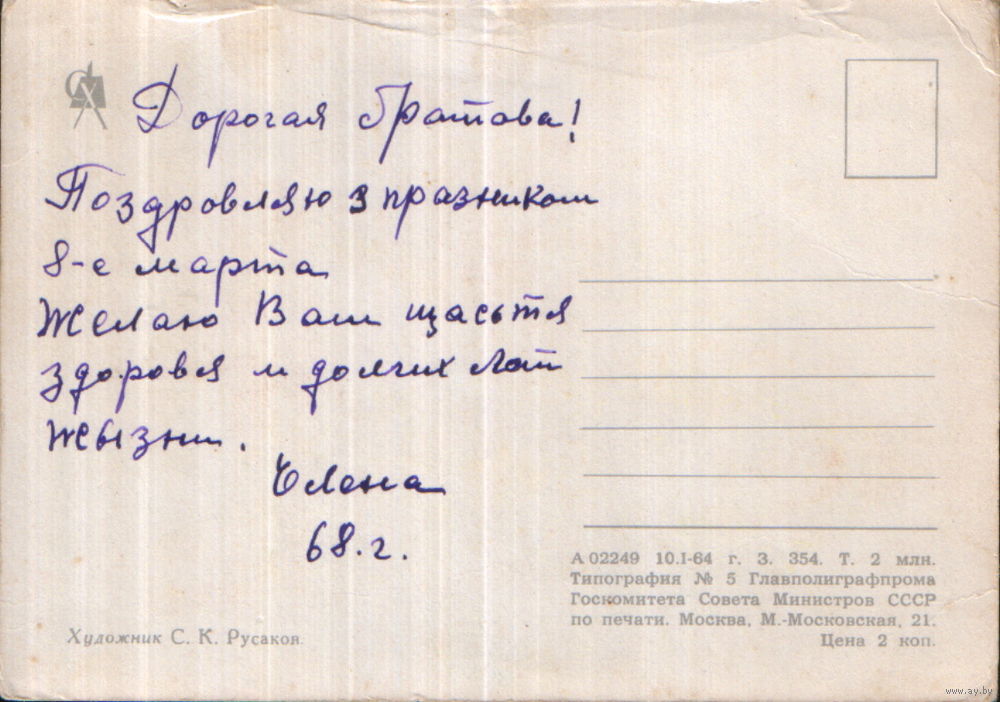 Дорогая Братова!
Поздровляю з празником
8-е марта
Желаю Вам щасьтя
здоровя и долгих лат
жызни.
Елена
68.г.
А 02249 10.I-64 г. З. 354. Т. 2 млн.
Типография № 5 Главполиграфпрома
Госкомитета Совета Министров СССР
по печати. Москва, М.-Московская, 21.
Цена 2 коп.
Художник С. К. Русаков.
www.ay.by